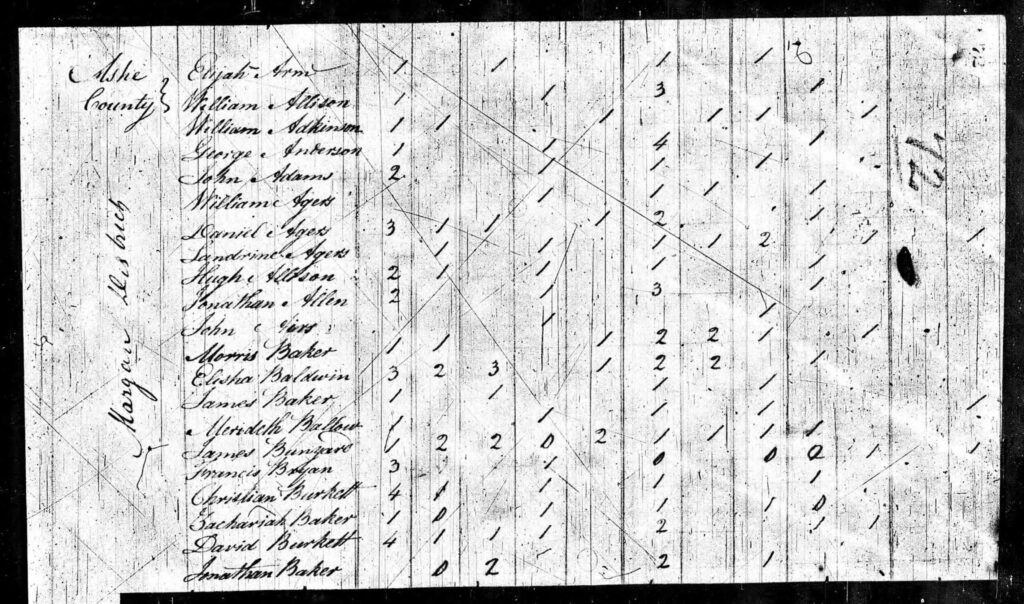 Ashe
County
Morgan District
Elijah Arm 1 1 1 1
William Allison 1 1 3 1
William Adkinson 1 1 1 1 1 1
George Anderson 1 1 4 1
John Adams 2 1 1 1
William Agers 1 1 1 1
Daniel Agers 3 1 1 1 2 1
Landrine Agers 1 1 1 1 2 1 1
Hugh Allison 2 1 1 1
Jonathan Allen 2 1 3
John 1 1
Morris Baker 1 1 1 2 2 1 1
Elisha Baldwin 3 2 3 1 2 2 1
James Baker 1 1 1 1
Merideth Ballow 1 1 1 1
James Bunyard 1 2 2 0 2 1 1 1 1
Francis Bryan 3 1 1 0 0 2 1 1
Christian Burkett 4 1 1 1 1
Zachariah Baker 1 0 1 1 1 0
David Burkett 4 1 1 1 2 1 1
Jonathan Baker 0 2 2 1
72